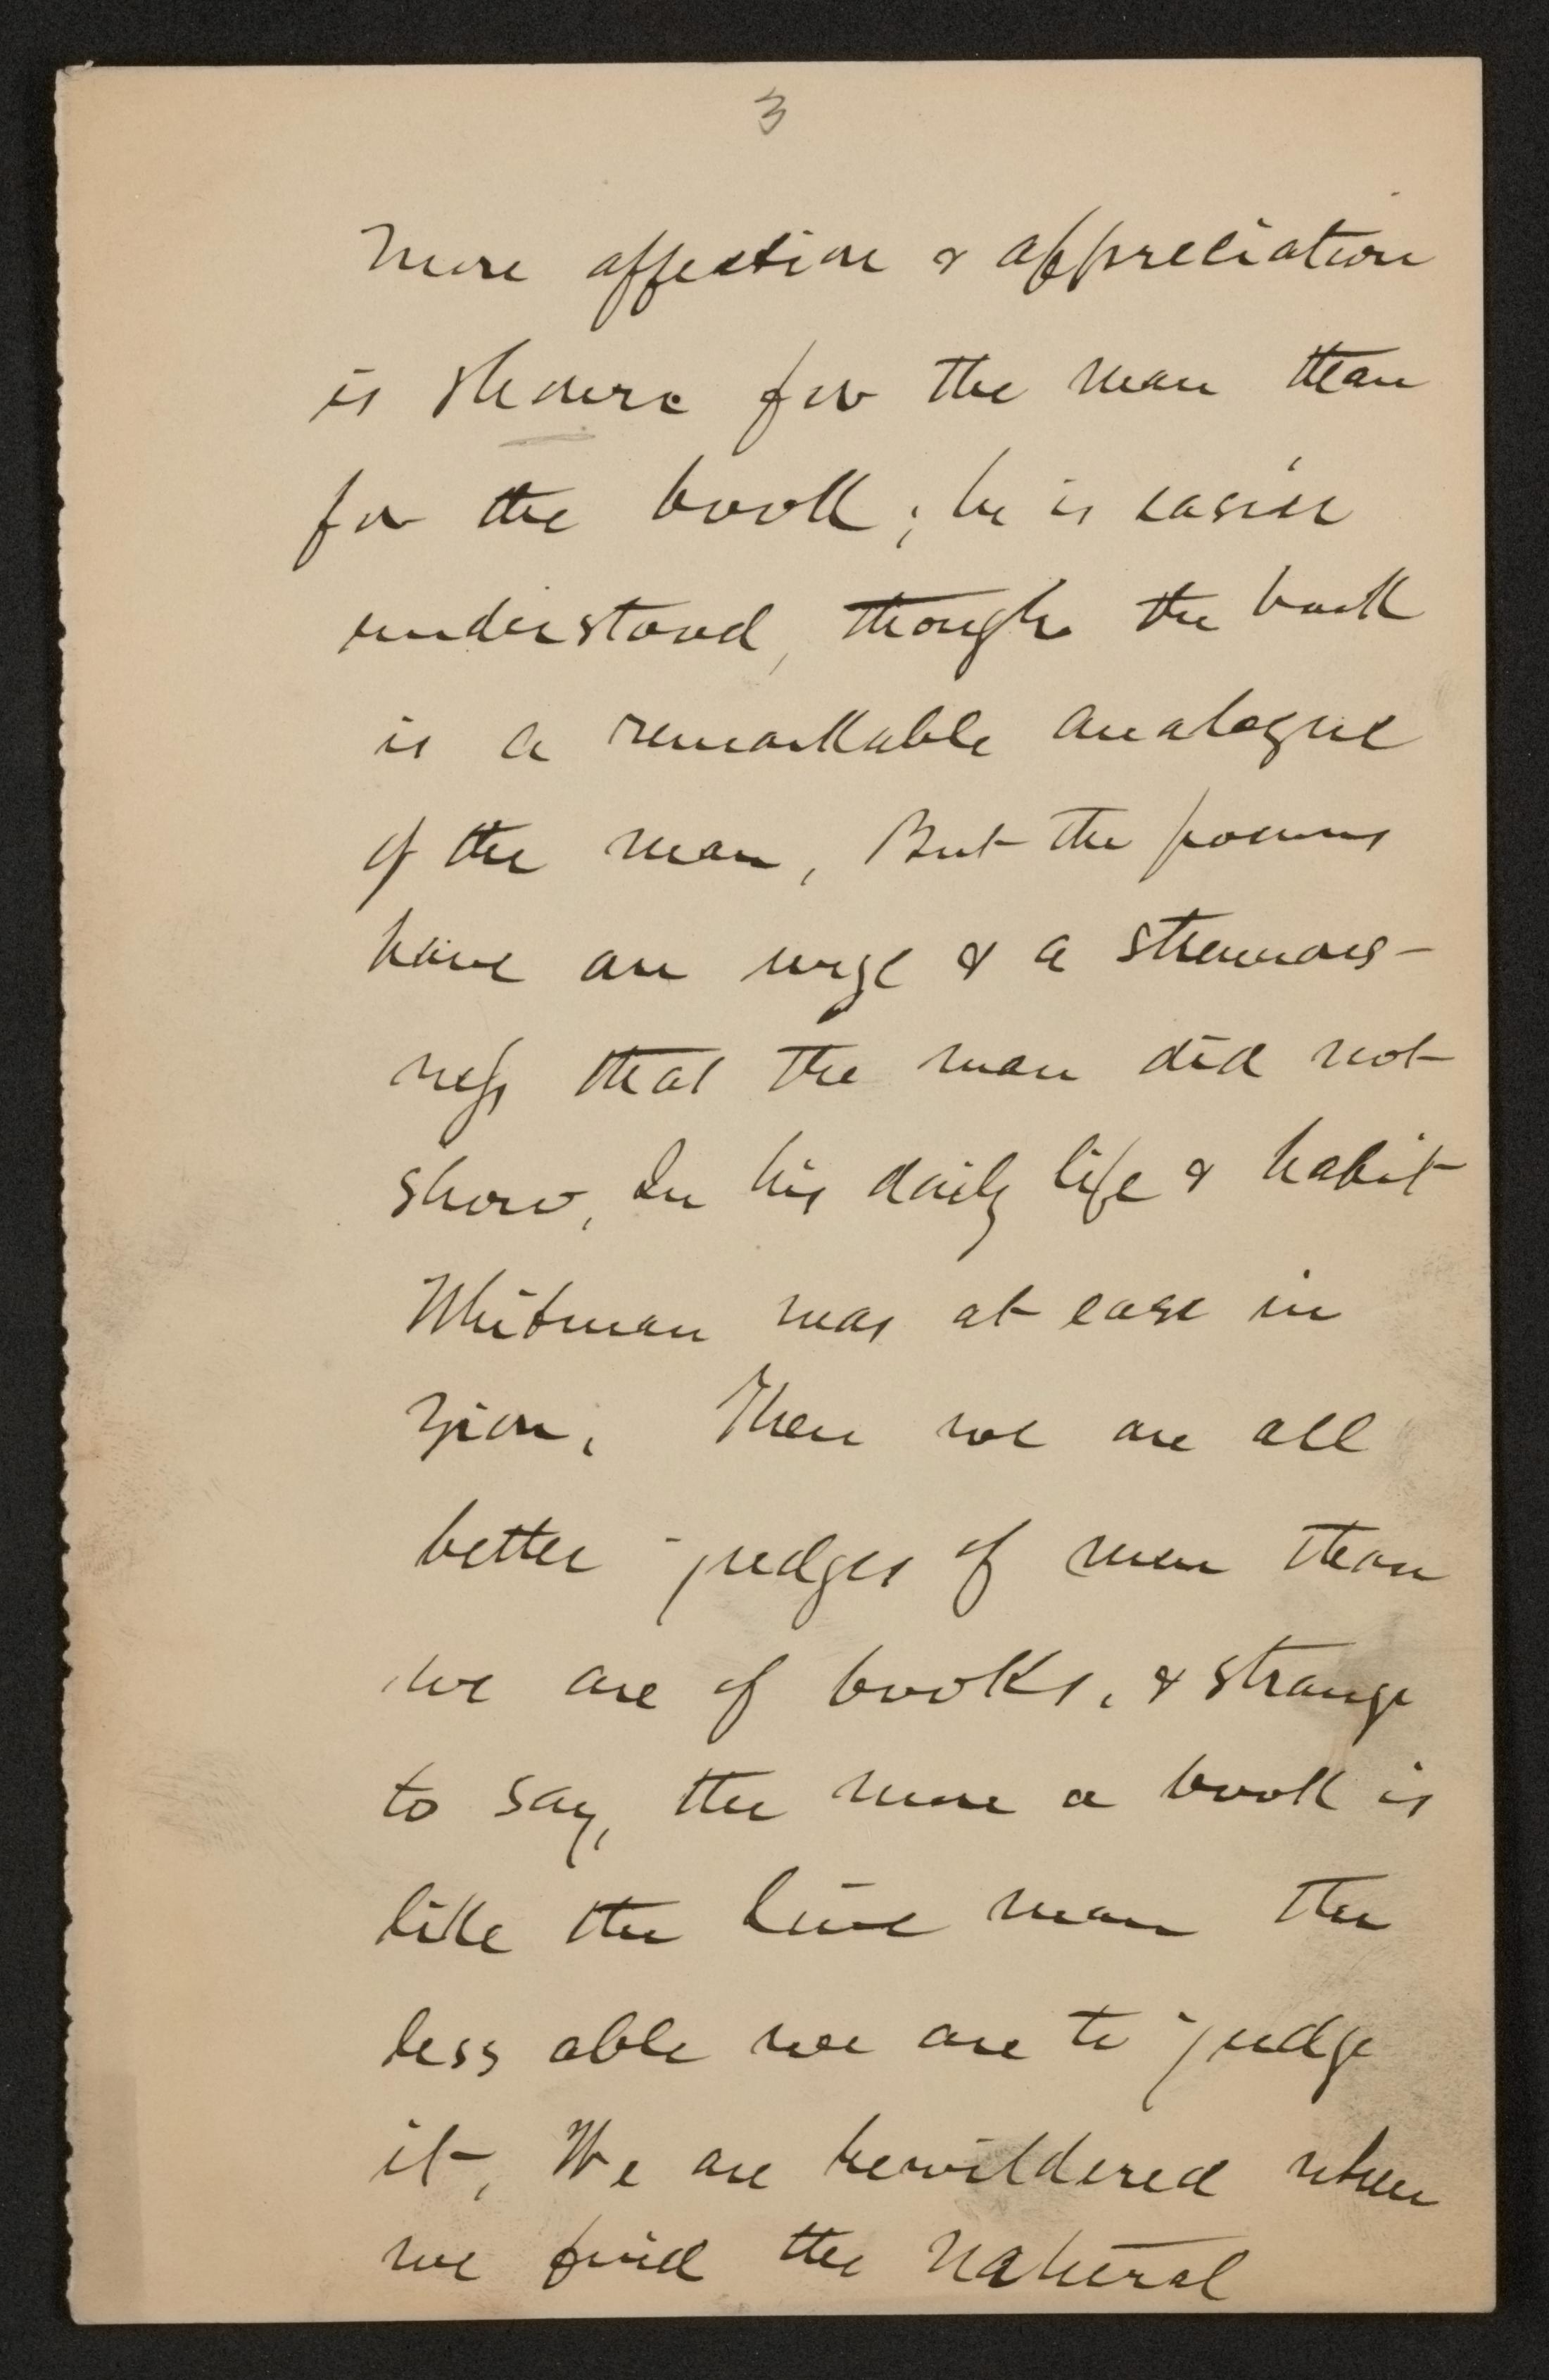 3
More affection & appreciation
is shown for the man than
for the book; he is easier
understood, though the book
is a remarkable analogue
of the man. But the poems
have an urge & a strenuous-
ness that the man did not
show. In his daily life & habit
Whitman was at ease in
Zion. Then we are all
better judges of men than
we are of books, & strange
to say, the more a book is
like the live man the
less able we are to judge
it. We are bewildered when
we find the natural